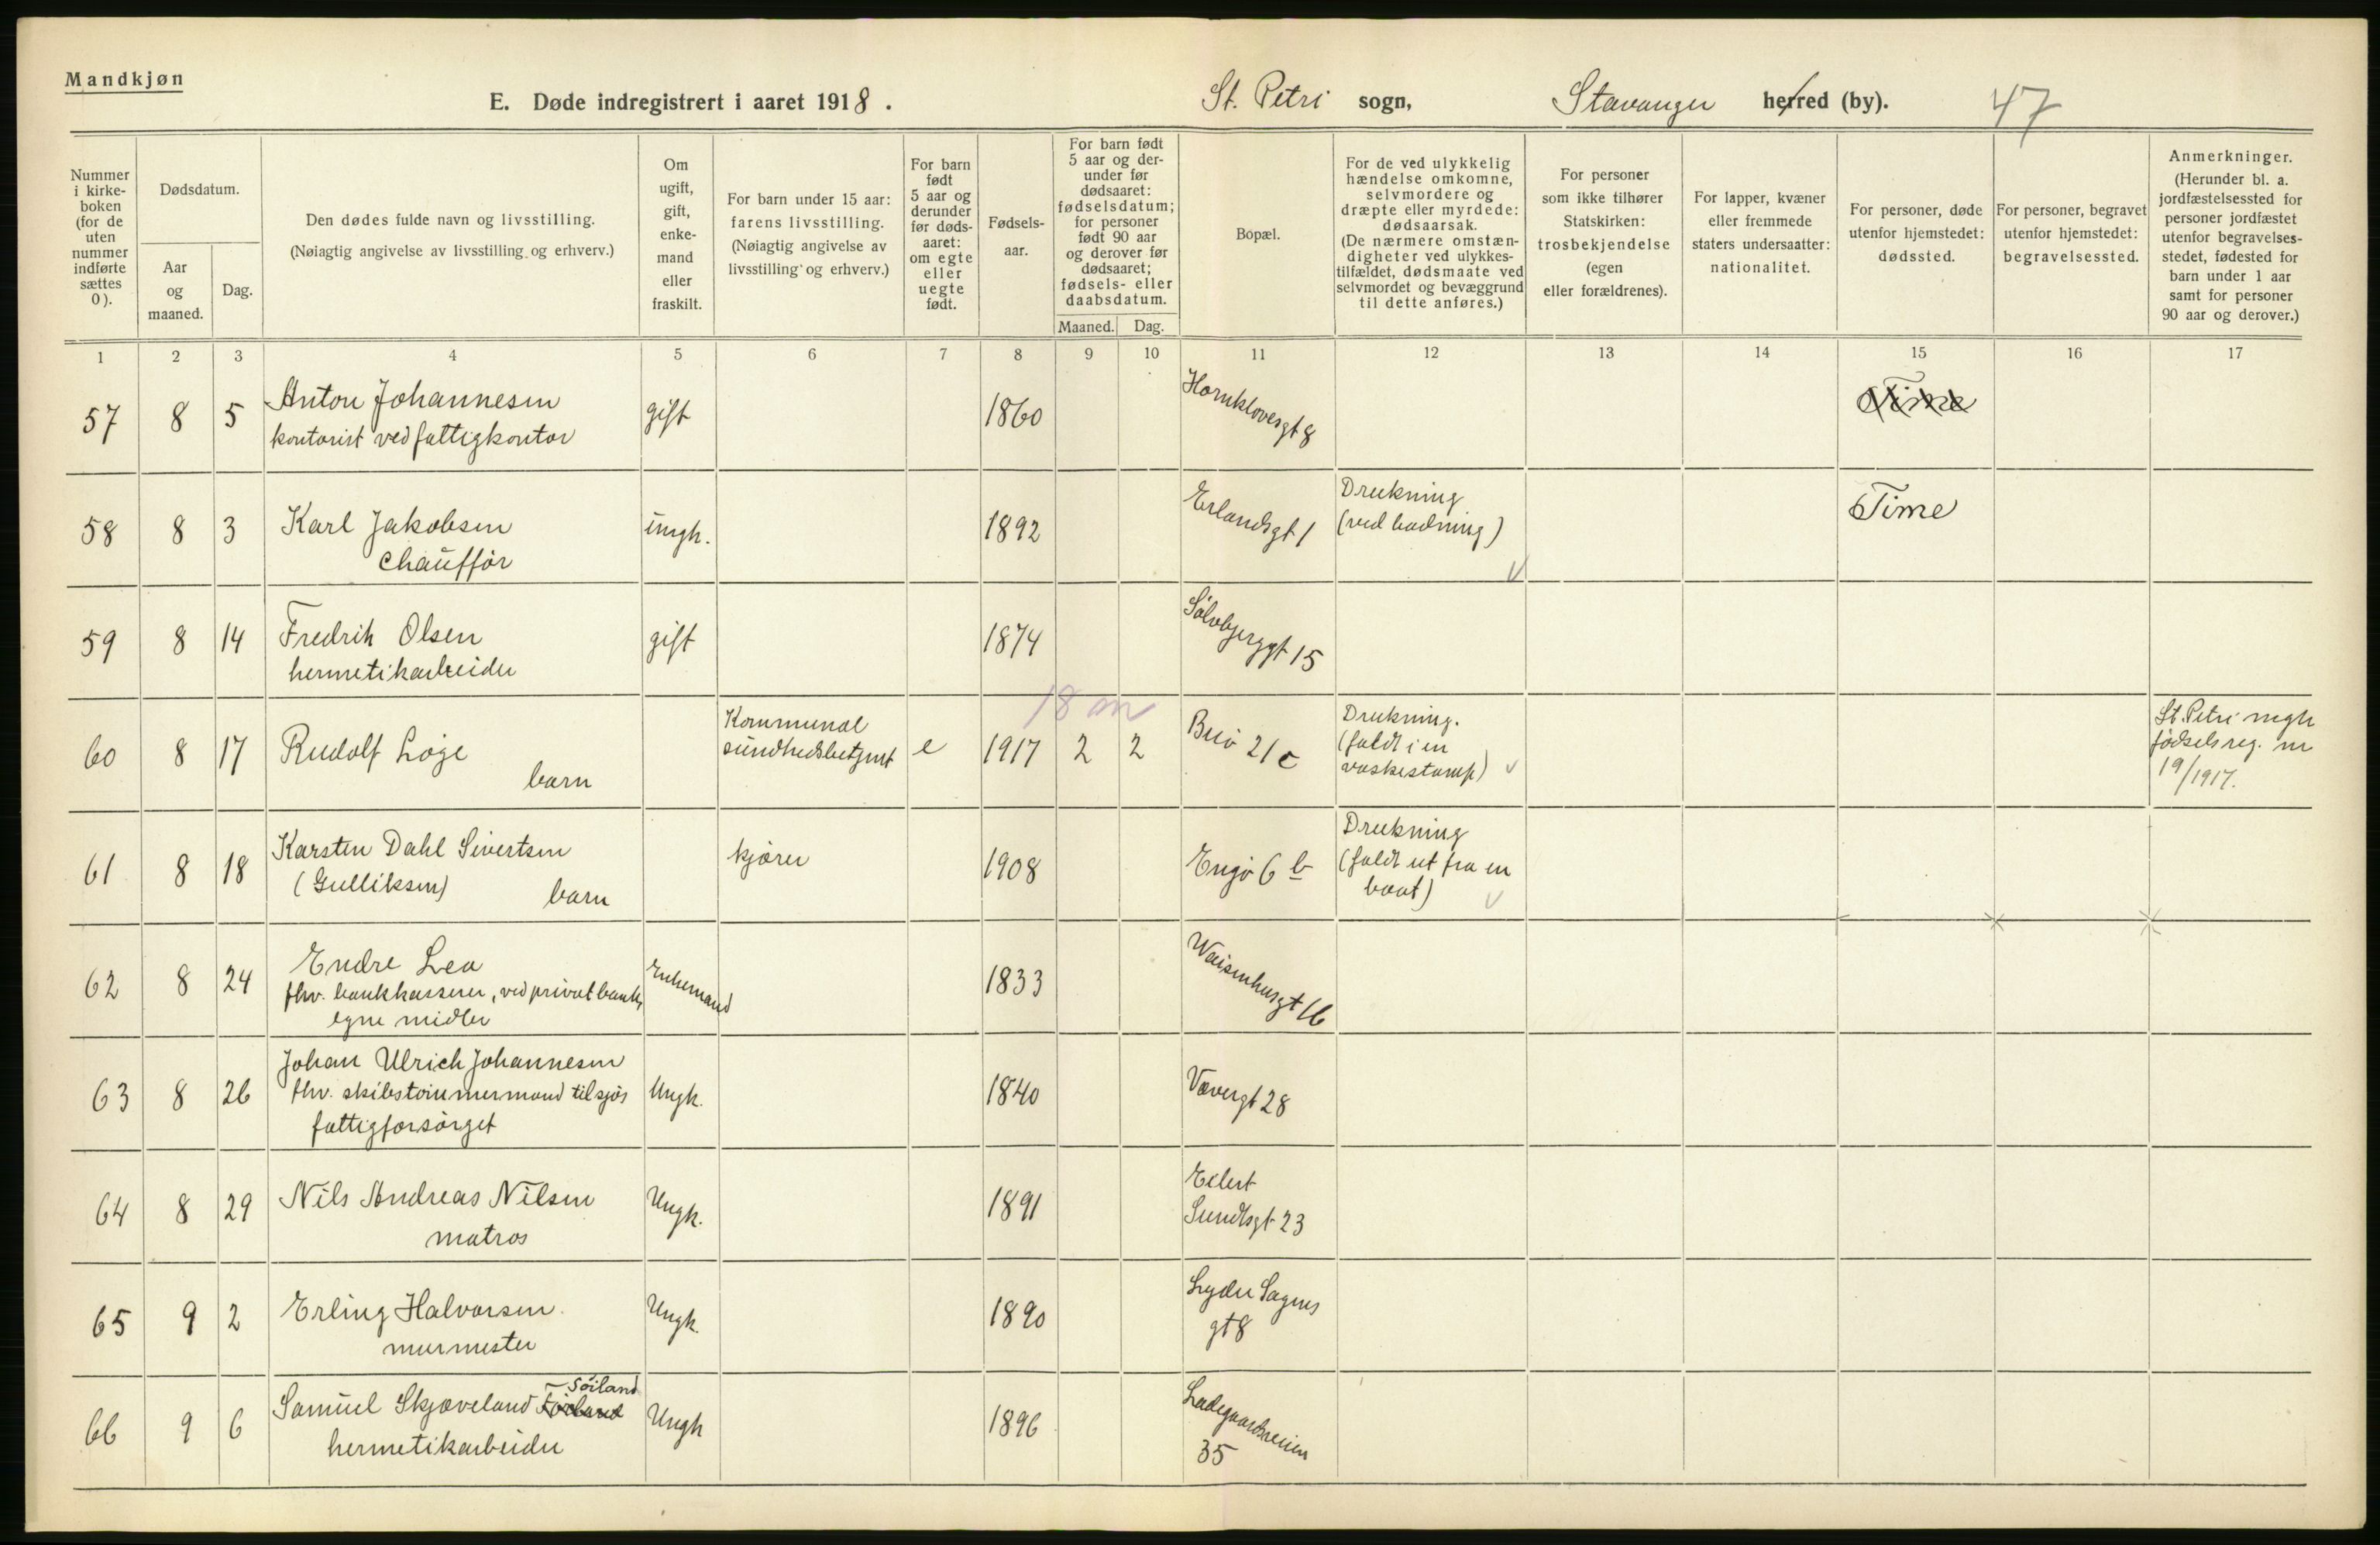 Mandkjøn
E. Døde indregistrert i aaret 1918.
St. Petri sogn,
Stavanger herred (by).
47
Nummer
i kirke-
boken
(for de
uten
nummer
indførte
sættes
0).
Dødsdatum.
Aar
og
maaned.
Dag.
Den dødes fulde navn og livsstilling.
(Nøiagtig angivelse av livsstilling og erhverv.)
Om
ugift,
gift,
enke-
mand
eller
fraskilt.
For barn under 15 aar:
farens livsstilling.
(Nøiagtig angivelse av
livsstilling og erhverv.)
For barn
født
5 aar og
derunder
før døds-
aaret:
om egte
eller
uegte
født.
Fødsels-
aar.
For barn født
5 aar og der-
under før
dødsaaret:
fødselsdatum;
for personer
født 90 aar
og derover før
dødsaaret;
fødsels- eller
daabsdatum.
Maaned. Dag.
Bopæl.
For de ved ulykkelig
hændelse omkomne,
selvmordere og
dræpte eller myrdede:
dødsaarsak.
(De nærmere omstæn-
digheter ved ulykkes-
tilfældet, dødsmaate ved
selvmordet og bevæggrund
til dette anføres.)
For personer
som ikke tilhører
Statskirken:
trosbekjendelse
(egen
eller forældrenes).
For lapper, kvæner
eller fremmede
staters undersaatter:
nationalitet.
For personer, døde
utenfor hjemstedet:
dødssted.
For personer, begravet
utenfor hjemstedet:
begravelsessted.
Anmerkninger.
(Herunder bl. a.
jordfæstelsessted for
personer jordfæstet
utenfor begravelses-
stedet, fødested for
barn under 1 aar
samt for personer
90 aar og derover.)
1 2 3 4 5 6 7 8 9 10 11 12 13 14 15 16 17
57 8 5 Anton Johannesen gift 1860 Hornklovesgt 8 Time
kontorist ved fattigkontor
58 8 3 Karl Jakobsen ungk. 1892 Erlandsgt 1 Drukning Time
chauffør
(ved badning)
59 8 14 Fredrik Olsen gift 1874 Sølvbjerggt 15
hermetikarbeider
18 m
60 8 17 Rudolf Løge
barn
Kommunal
sundhedsbetjent
e 1917 2 2 Buø 21c
Drukning.
(faldt i en
vaskestamp)
St. Petri mgh
fødselsreg. nr
19/1917.
61 8 18 Karsten Dahl Sivertsen
(Gulliksen) barn
kjører 1908 Engø 6 b
Drukning
(faldt ut fra en
baat)
62 8 24 Endre Lea Enkemand 1833 Waisenhusgt 16
fhv. bankkasserer, ved privat bank,
egne midler
63 8 26 Johan Ulrich Johannesen Ungk. 1840 Vævergt 28
fhv. skibstømmermand tilsjøs
fattigforsørget
64 8 29 Nils Andreas Nilsen Ungk. 1891 Eilert
matros Sundtsgt 23
65 9 2 Erling Halvorsen Ungk. 1890 Lyder Sagens
murmester gt 8
66 9 6 Samuel Skjæveland – Søiland Ungk 1896 Ladegaardsveien
hermetikarbeider 35